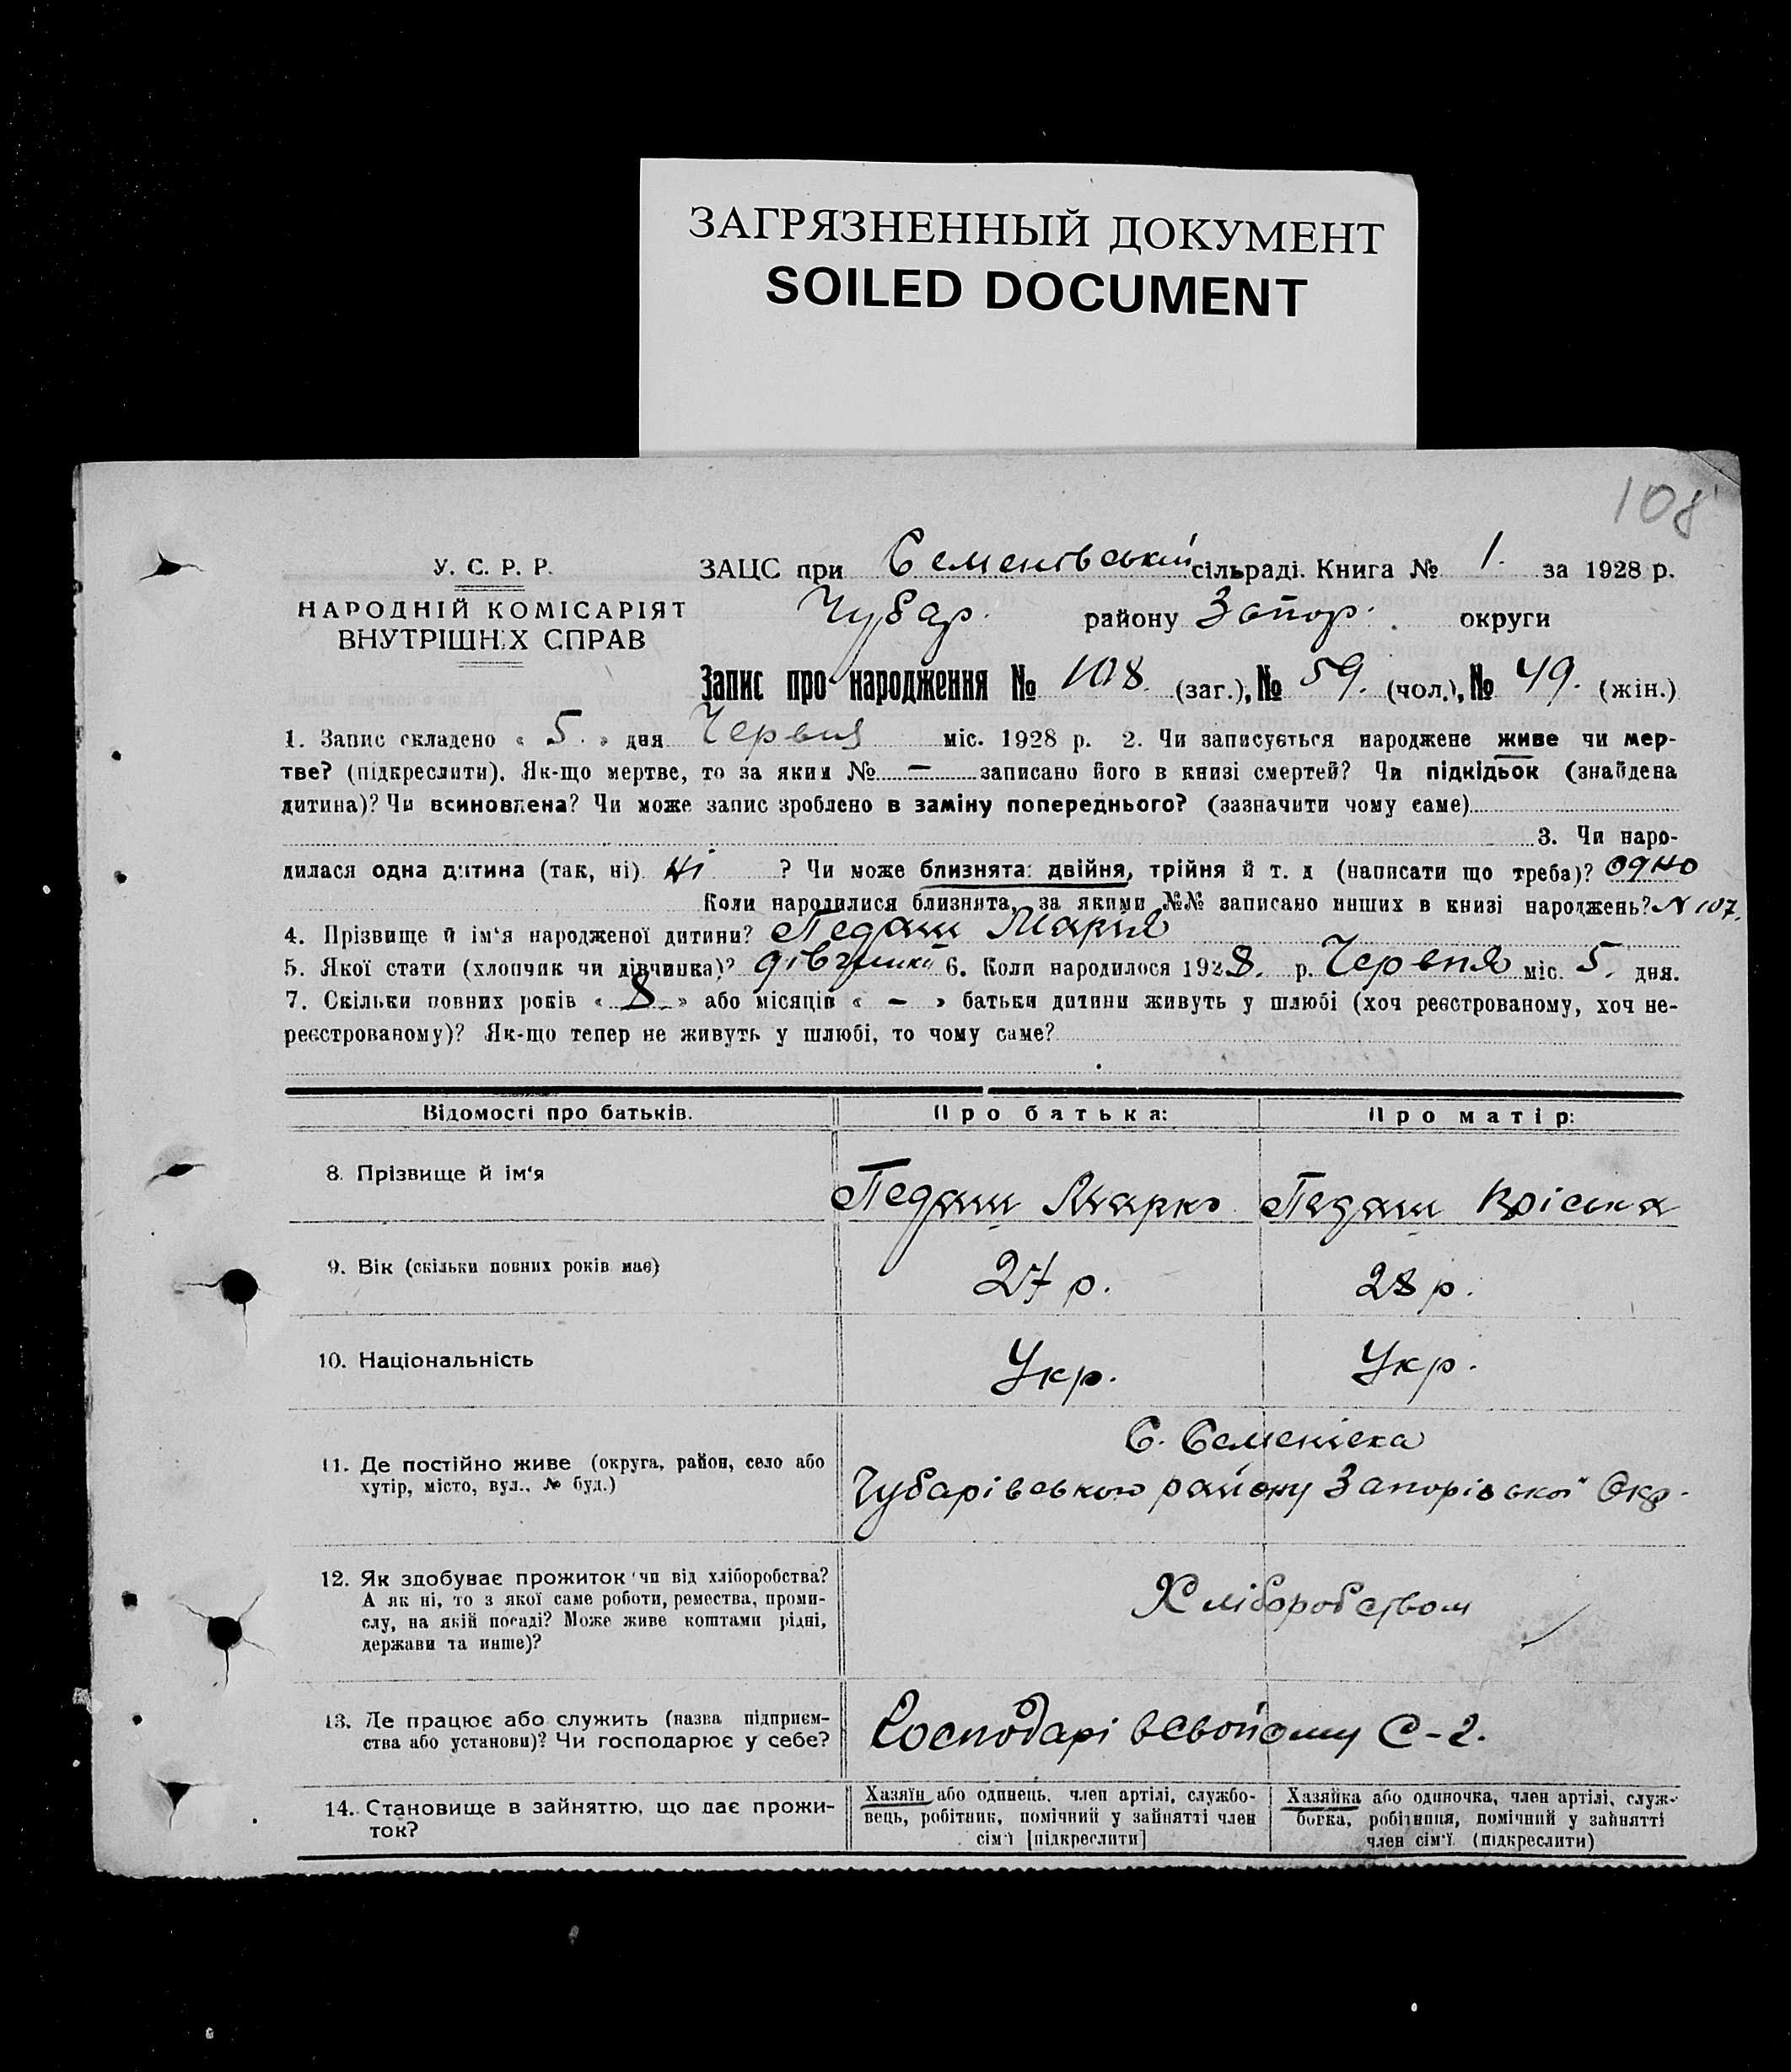 ЗАГРЯЗНЕННЫЙ ДОКУМЕНТ
SOILED DOCUMENT
108
У. С. Р. Р.
НАРОДНІЙ КОМІСАРІЯТ
ВНУТРІШНІХ СПРАВ
ЗАЦС при Семенівській сільраді. Книга № 1. за 1928 р.
Чубар. району Запор. округи
Запис про народження № 108. (заг.), № 59. (чол.), № 49. (жін.)
1. Запис складено « 5. » дня Червня міс. 1928 р. 2. Чи записується народжене живе чи мер-
тве? (підкреслити). Як-що мертве, то за яким № — записано його в книзі смертей? Чи підкідьок (знайдена
дитина)? Чи всиновлена? Чи може запис зроблено в заміну попереднього? (зазначити чому саме)
3. Чи наро-
дилася одна дитина (так, ні) Ні ? Чи може близнята: двійня, трійня й т. д (написати що треба)? одно
Коли народилися близнята, за якими №№ записано инших в книзі народжень? N 107.
4. Прізвище й ім'я народженої дитини? Педаш Марія
5. Якої стати (хлопчик чи дівчинка)? дівчинка 6. Коли народилося 1928. р. Червня міс. 5. дня.
7. Скільки повних років « 8 » або місяців « — » батьки дитини живуть у шлюбі (хоч реєстрованому, хоч не-
реєстрованому)? Як-що тепер не живуть у шлюбі, то чому саме?
Відомості про батьків. Про батька: Про матір:
8. Прізвище й ім'я Педаш Марко Педаш
9. Вік (скільки повних років має) 27 р. 28 р.
10. Національність Укр. Укр.
С. Семенівка
11. Де постійно живе (округа, район, село або
хутір, місто, вул., № буд.) Чубарівського району Запорізької Окр.
12. Як здобуває прожиток чи від хліборобства?
А як ні, то з якої саме роботи, ремества, проми-
слу, на якій посаді? Може живе коштами рідні,
держави та инше)? Хліборобством
13. Де працює або служить (назва підприєм-
ства або установи)? Чи господарює у себе? Господарі в свойому С-г.
14. Становище в зайняттю, що дає прожи-
ток?
Хазяїн або одинець, член артілі, службо-
вець, робітник, помічний у зайнятті член
сім'ї [підкреслити]
Хазяйка або одиночка, член артілі, служ-
бовка, робітниця, помічний у зайнятті
член сім'ї. (підкреслити)